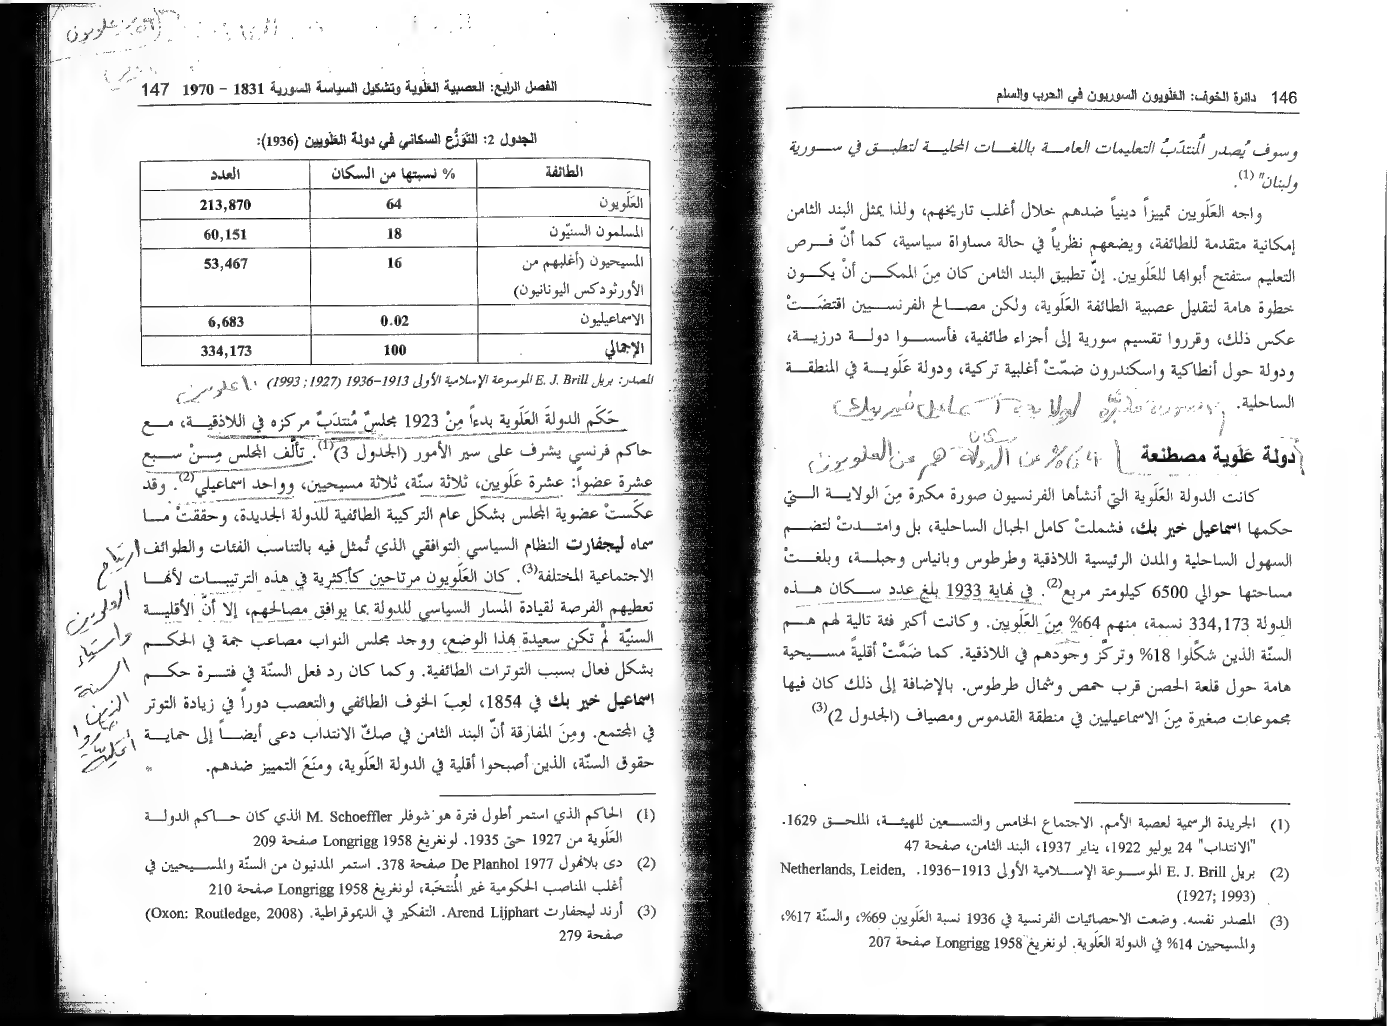 146 دائرة الخوف: العَلَويون السوريون في الحرب والسلم
وسوف يُصدر المُنتدَبُ التعليمات العامة باللغات المحلية لتطبق في سورية
ولبنان" (1).
واجه العَلَويين تمييزاً دينياً ضدهم خلال أغلب تاريخهم، ولذا يمثل البند الثامن
إمكانية متقدمة للطائفة، ويضعهم نظرياً في حالة مساواة سياسية، كما أنّ فرص
التعليم ستفتح أبوابها للعَلَويين. إنّ تطبيق البند الثامن كان مِنَ الممكن أنْ يكون
خطوة هامة لتقليل عصبية الطائفة العَلَوية، ولكن مصالح الفرنسيين اقتضَتْ
عكس ذلك، وقرروا تقسيم سورية إلى أجزاء طائفية، فأسسوا دولة درزية،
ودولة حول أنطاكية واسكندرون ضمّتْ أغلبية تركية، ودولة عَلَوية في المنطقة
الساحلية.
دولة عَلَوية مصطنعة
كانت الدولة العَلَوية التي أنشأها الفرنسيون صورة مكبرة مِنَ الولاية التي
حكمها اسماعيل خير بك، فشملتْ كامل الجبال الساحلية، بل وامتدتْ لتضم
السهول الساحلية والمدن الرئيسية اللاذقية وطرطوس وبانياس وجبلة، وبلغتْ
مساحتها حوالي 6500 كيلومتر مربع(2). في نهاية 1933 بلغ عدد سكان هذه
الدولة 334,173 نسمة، منهم 64% مِنَ العَلَويين. وكانت أكبر فئة تالية لهم هم
السنّة الذين شكّلوا 18% وتركّز وجودهم في اللاذقية. كما ضمَّتْ أقليةً مسيحية
هامة حول قلعة الحصن قرب حمص وشمال طرطوس. بالإضافة إلى ذلك كان فيها
مجموعات صغيرة مِنَ الاسماعيليين في منطقة القدموس ومصياف (الجدول 2)(3)
(1) الجريدة الرسمية لعصبة الأمم. الاجتماع الخامس والتسعين للهيئة، الملحق 1629.
"الانتداب" 24 يوليو 1922، يناير 1937، البند الثامن، صفحة 47
(2) بريل E. J. Brill الموسوعة الإسلامية الأولى 1913-1936. Netherlands, Leiden,
(1927; 1993)
(3) المصدر نفسه. وضعت الاحصائيات الفرنسية في 1936 نسبة العَلَويين 69%، والسنّة 17%،
والمسيحيين 14% في الدولة العَلَوية. لونغريغ Longrigg 1958 صفحة 207
الفصل الرابع: العصبية العَلَوية وتشكيل السياسة السورية 1831 – 1970 147
الجدول 2: التَوَزُّع السكاني في دولة العَلَويين (1936):
الطائفة % نسبتها من السكان العدد
العَلَويون 64 213,870
المسلمون السنيّون 18 60,151
المسيحيون (أغلبهم من 16 53,467
الأورثودكس اليونانيون)
الاسماعيليون 0.02 6,683
الإجمالي 100 334,173
المصدر: بريل E. J. Brill الموسوعة الإسلامية الأولى 1913-1936 (1927; 1993)
حَكَم الدولةَ العَلَوية بدءاً مِنْ 1923 مجلسٌ مُنتدَبٌ مركزه في اللاذقية، مع
حاكم فرنسي يشرف على سير الأمور (الجدول 3)(1). تألّف المجلس مِنْ سبع
عشرة عضواً: عشرة عَلَويين، ثلاثة سنّة، ثلاثة مسيحيين، وواحد اسماعيلي(2). وقد
عكستْ عضوية المجلس بشكل عام التركيبة الطائفية للدولة الجديدة، وحققتْ ما
سماه ليجفارت النظام السياسي التوافقي الذي تُمثل فيه بالتناسب الفئات والطوائف
الاجتماعية المختلفة(3). كان العَلَويون مرتاحين كأكثرية في هذه الترتيبات لأنها
تعطيهم الفرصة لقيادة المسار السياسي للدولة بما يوافق مصالحهم، إلا أنّ الأقلية
السنيّة لمْ تكن سعيدة بهذا الوضع، ووجد مجلس النواب مصاعب جمة في الحكم
بشكل فعال بسبب التوترات الطائفية. وكما كان رد فعل السنّة في فترة حكم
اسماعيل خير بك في 1854، لعِبَ الخوف الطائفي والتعصب دوراً في زيادة التوتر
في المجتمع. ومِنَ المفارقة أنّ البند الثامن في صكّ الانتداب دعى أيضاً إلى حماية
حقوق السنّة، الذين أصبحوا أقلية في الدولة العَلَوية، ومنَعَ التمييز ضدهم.
(1) الحاكم الذي استمر أطول فترة هو شوفلر M. Schoeffler الذي كان حاكم الدولة
العَلَوية من 1927 حتى 1935. لونغريغ Longrigg 1958 صفحة 209
(2) دى بلانهول De Planhol 1977 صفحة 378. استمر المدنيون من السنّة والمسيحيين في
أغلب المناصب الحكومية غير المُنتخَبة، لونغريغ Longrigg 1958 صفحة 210
(3) أرند ليجفارت Arend Lijphart. التفكير في الديموقراطية. (Oxon: Routledge, 2008)
صفحة 279
ارتياح
العلويين
واستياء
السنة
الذين
صاروا
أقلية